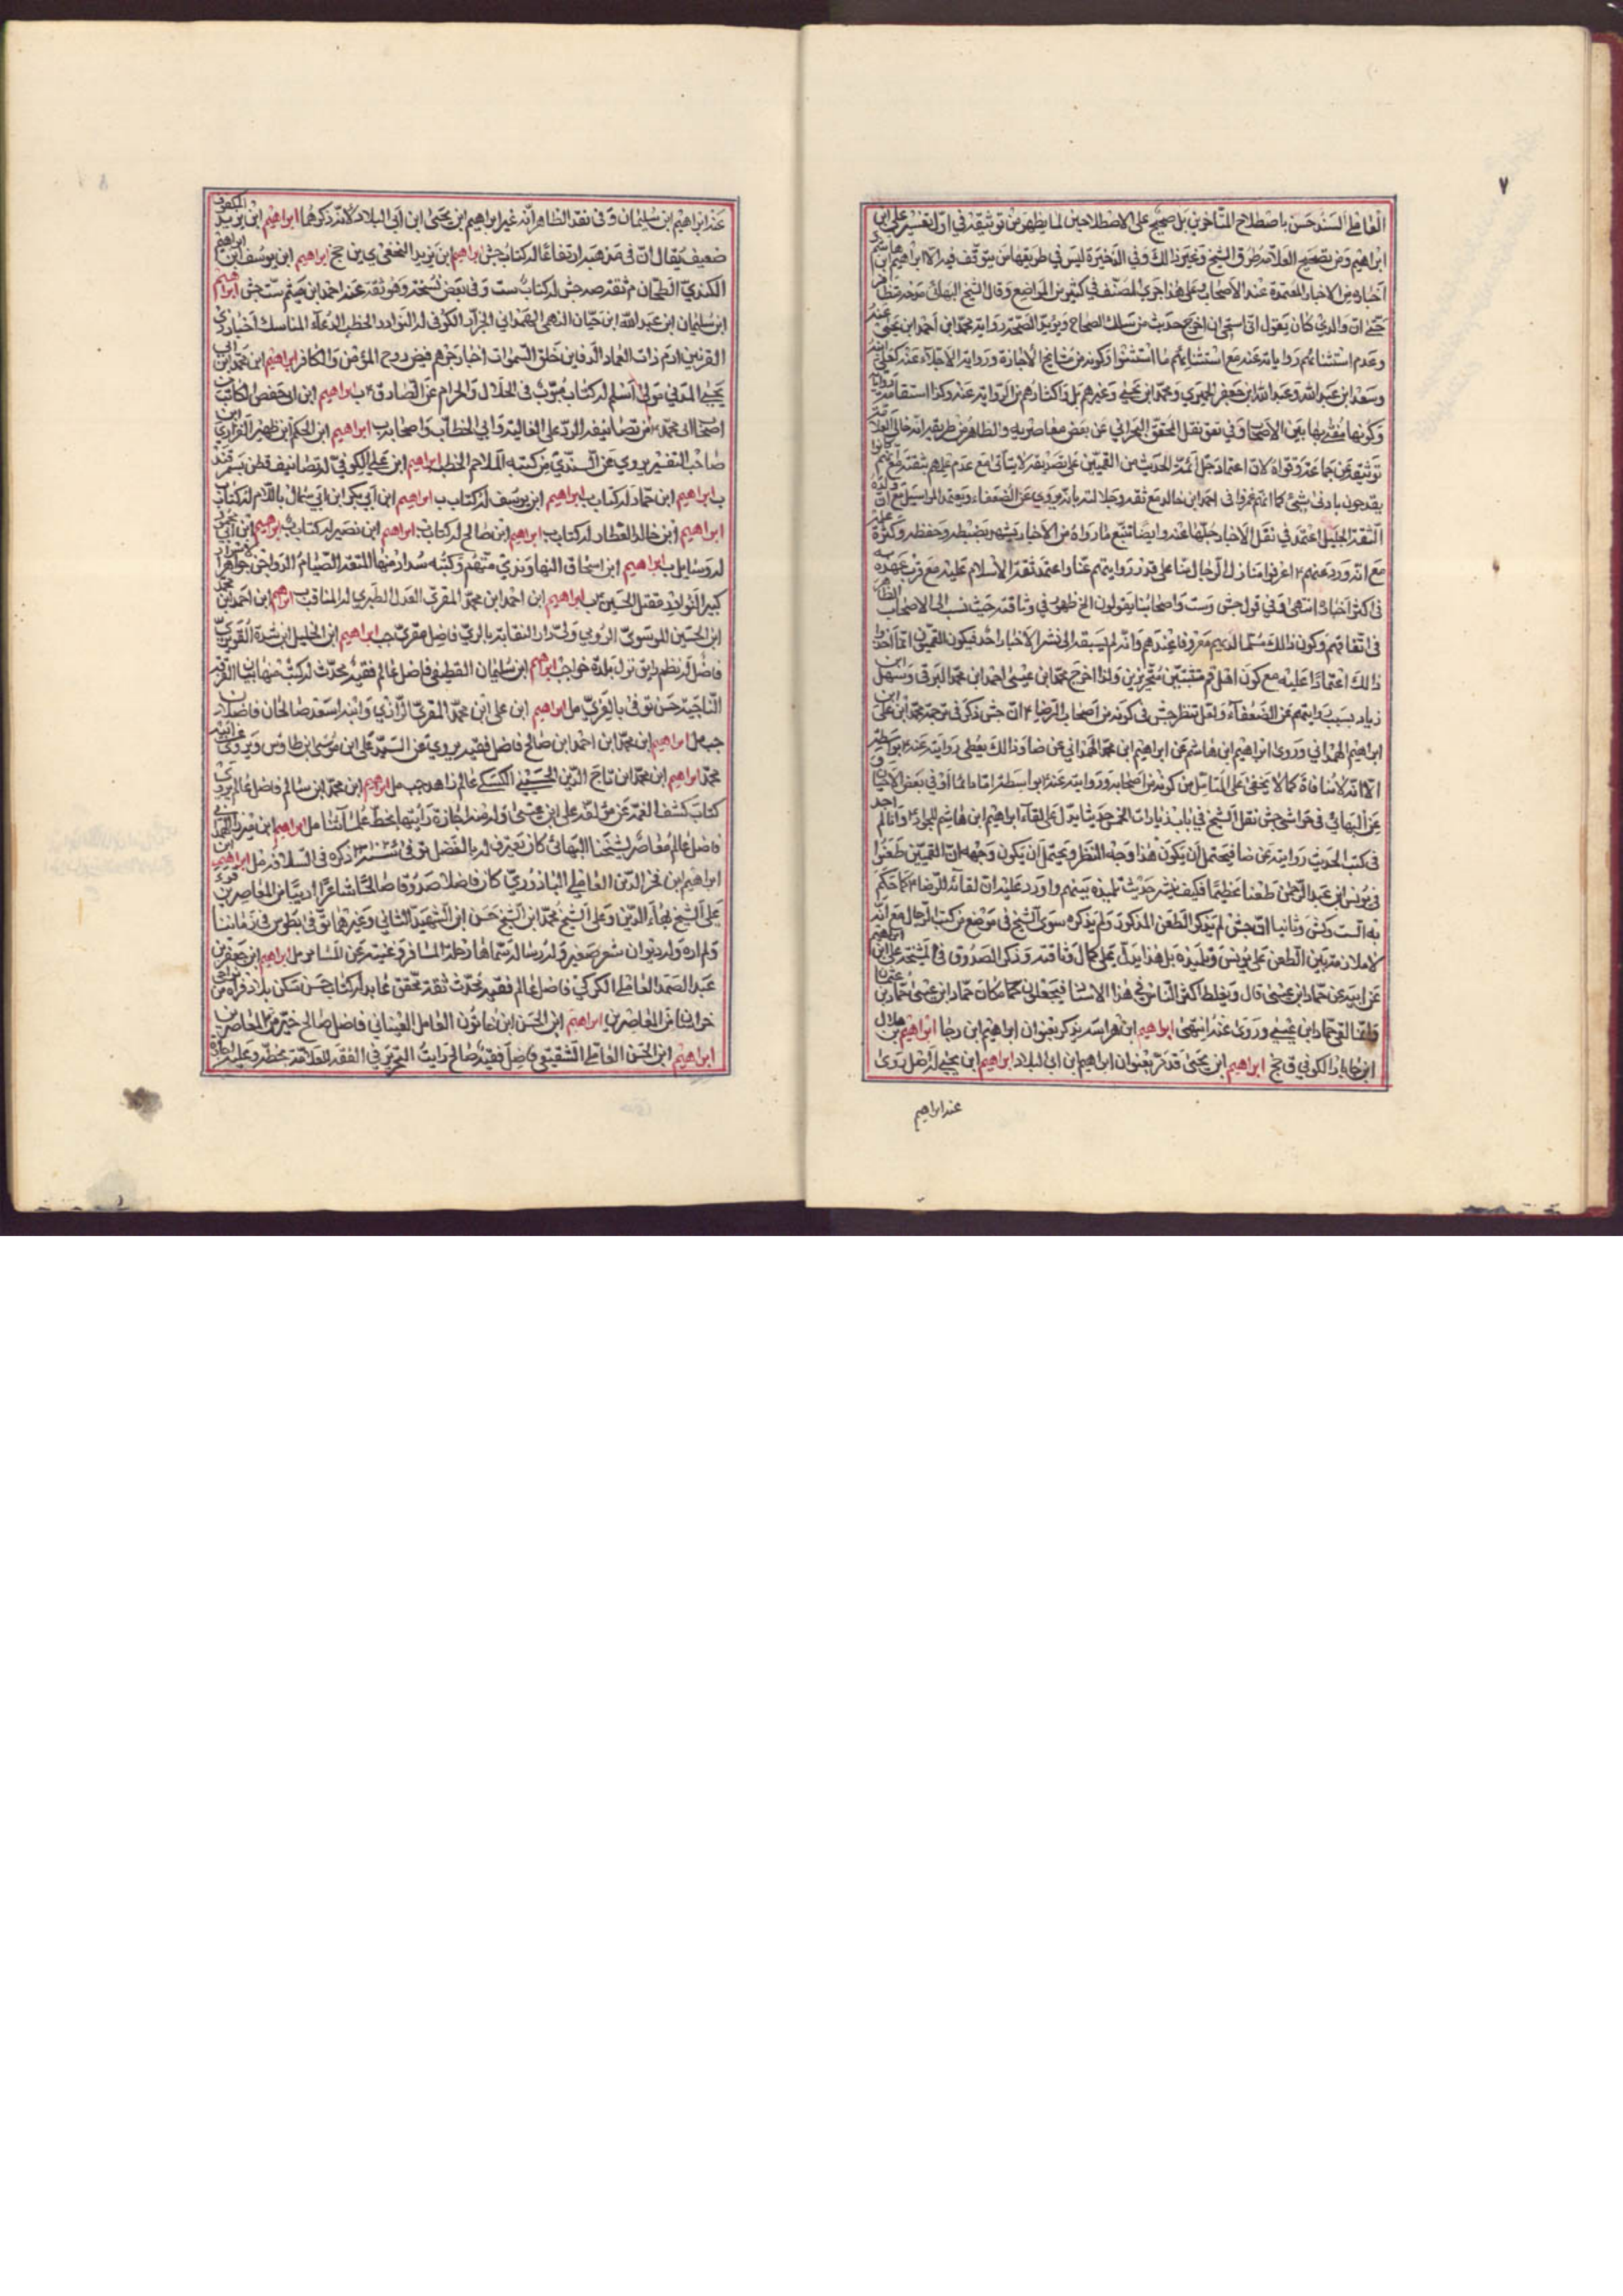 ٧
العاملي السند حسن باصطلاح المتأخرين بل صحيح على الاصطلاحين لما يظهر من توثيقه في اول تفسير علي ابن
ابراهيم ومن تصحيح العلامة طرق الشيخ وغير ذالك وفي الذخيرة ليس في طريقها من يتوقف فيه الا ابراهيم ابن هاشم
اخباره من الاخبار المعتمدة عند الاصحاب وعلى هذا جرى المصنف في كثير من المواضع وقال الشيخ البهائي
ان والدي كان يقول اني استحي ان اخرج حديثه من سلك الصحاح ويؤيد الصحة رواية محمد ابن احمد ابن يحيى عنه
وعدم استثنائهم رواياته عنه مع استثنائهم ما استثنوا وكونه من مشايخ الاجازة ورواية الاجلاء عنه كعلي ابنه
وسعد ابن عبد الله وعبد الله ابن جعفر الحميري ومحمد ابن يحيى وغيرهم بل واكثارهم من الرواية عنه وكذا استقامة رواياته
وكونها مفتى بها بين الاصحاب وفي نقل المحقق البحراني عن بعض معاصريه والظاهر من طريقه
توثيقه عن جماعة وقواه لان اعتماد جل ائمة الحديث من القميين على تصديقه لا يتأتى مع عدم علمهم بثقته مع انهم كانوا
يقدحون بادنى شئ كما انهم غمزوا في احمد ابن خالد مع ثقته وجلالته بانه يروي عن الضعفاء ويعتمد المراسيل مع ان ولده
الثقة الجليل اعتمد في نقل الاخبار جلها عنه وايضا تتبع ما رواه من الاخبار يشهد بضبطه وحفظه وكثرة
مع انه ورد عنهم اعرفوا منازل الرجال منا على قدر روايتهم عنا واعتمد ثقة الاسلام عليه مع قرب عهده به
في اكثر اخباره انتهى وفي قول جش وست واصحابنا يقولون الخ ظهور في وثاقته حيث نسب الى الاصحاب
ذالك اعتمادا عليه مع كون اهل قم متثبتين متحرزين ولذا اخرج محمد ابن عيسى احمد ابن محمد البرقي وسهل ابن
زياد بسبب روايتهم عن الضعفاء ولعل تنظر جش في كونه من اصحاب الرضا ان جش ذكر في ترجمة محمد ابن علي ابن
ابراهيم الهمداني وروى ابراهيم ابن هاشم عن ابراهيم ابن محمد الهمداني عن ضا وذالك يعطي روايته عنه بواسطة
الا انه لا منافاة كما لا يخفى على المتأمل من كونه من اصحابه وروايته عنه بواسطة اما دائما او في بعض الاحيان
عن البهائي في حواشي جش نقل الشيخ في باب زيارات الخمس حديثا يدل على لقاء ابراهيم ابن هاشم للجواد وانا لم اجد
في كتب الحديث روايته عن ضا فيحتمل ان يكون هذا وجه النظر ويحتمل ان يكون وجهه ان القميين طعنوا
في يونس ابن عبد الرحمن طعنا عظيما فكيف ينشر حديث تلميذه بينهم واورد عليه ان لقائه للرضا كما حكم
به الست وكش وثانيا ان جش لم يذكر الطعن المذكور ولم يذكره سوى الشيخ في موضع من كتب الرجال مع انه
لا ملازمة بين الطعن على يونس وتلميذه بل هذا يدل على كمال وثاقته وذكر الصدوق في المشيخة علي ابن ابراهيم
عن ابيه عن حماد ابن عيسى قال ويغلط اكثر الناس في هذا الاسناد فيجعلون مكان حماد ابن عيسى حماد بن عثمان
وانما لقي حماد ابن عيسى وروى عنه انتهى ابراهيم ابن هراسة يذكر بعنوان ابراهيم ابن رجا ابراهيم بن هلال
ابن جابان الكوفي ق جخ ابراهيم ابن يحيى قد مر بعنوان ابراهيم ابن ابي البلاد ابراهيم ابن يحيى له اصل روى
عنه ابراهيم
عنه ابراهيم ابن سليمان وفي نقد الظاهر انه غير ابراهيم ابن يحيى ابن ابي البلاد لانه ذكرهما ابراهيم ابن يزيد المكفوف
ضعيف يقال ان في مذهبه ارتفاعا له كتاب جش ابراهيم ابن يزيد النخعي ي ين جخ ابراهيم ابن يوسف ابن ابراهيم
الكندي الطحان ثقة صه جش له كتاب ست وفي بعض نسخه وهو ثقة عنه احمد ابن ميثم ست جش ابراهيم
ابن سليمان ابن عبد الله ابن حيان النهمي الهمداني الخزاز الكوفي له النوادر الخطب الدعاء المناسك اخبار ذي
القرنين ارم ذات العماد الدفاين خلق السموات اخبار جرهم قبض روح المؤمن والكافر ابراهيم ابن محمد ابن ابي
يحيى المدني مولى اسلم له كتاب مبوب في الحلال والحرام عن الصادق ب ابراهيم ابن ابي حفص الكاتب
اصحاب ابي محمد من تصانيفه الرد على الغالية وابي الخطاب واصحابه ب ابراهيم ابن الحكم ابن ظهير الفزاري
صاحب التفسير يروي عن السندي من كتبه الملاحم الخطب ابراهيم ابن علي الكوفي له تصانيف قطن سمرقند
ب ابراهيم ابن حماد له كتاب ب ابراهيم ابن يوسف له كتاب ب ابراهيم ابن ابي بكر ابن ابي سمال باللام له كتاب
ابراهيم ابن خالد العطار له كتاب ب ابراهيم ابن صالح له كتاب ب ابراهيم ابن نصير له كتاب ب ابراهيم ابن ابي
ابراهيم ابن اسحاق النهاوندي متهم وكتبه سداد منها المتعة الصيام الدواجن جواهر
مقتل الحسين ب ابراهيم ابن احمد ابن محمد المقري العدل الطبري له المناقب ب ابراهيم ابن احمد ابن محمد
ابن الحسين الموسوي الرومي ولي دار النقابة بالري فاضل مقرئ جب ابراهيم ابن الخليل
ابراهيم ابن سليمان القطيفي فاضل عالم فقيه محدث له كتب منها بيان الفرقة
الناجية حسن توفي بالغري مل ابراهيم ابن علي ابن محمد المقري الرازي وابنه اسعد صالحان فاضلان
جب مل ابراهيم ابن محمد ابن احمد ابن صالح فاضل فقيه يروي عن السيد علي ابن موسى ابن طاوس
محمد ابراهيم ابن محمد ابن تاج الدين الحسيني الكسكي عالم زاهد جب مل ابراهيم ابن محمد ابن سالم فاضل عالم يروي
كتاب كشف الغمة عن مؤلفه علي ابن عيسى وله منه اجازة رايتها بخط علمائنا مل ابراهيم ابن
فاضل عالم معاصر لشيخنا البهائي كان يعترف له بالفضل توفي سنة ١٠٢٥ ذكره في السلافة مل ابراهيم ابن
ابراهيم ابن فخر الدين العاملي البازوري كان فاضلا صدوقا صالحا شاعرا اديبا من المعاصرين قرء
على الشيخ بهاء الدين وعلى الشيخ محمد ابن الشيخ حسن ابن الشهيد الثاني وغيرهما توفى بطوس في زماننا
ولم اره وله ديوان شعر صغير ورسالة سماها رحلة المسافر وغنية عن المسامر مل ابراهيم ابن جعفر بن
عبد الصمد العاملي الكركي فاضل عالم فقيه محدث ثقة محقق عابد له كتاب حسن سكن بلاد فراه من نواحي
خراسان من المعاصرين ابراهيم ابن الحسن ابن خاتون العاملي العيناثي فاضل صالح خير من المعاصرين
ابراهيم ابن الحسن العاملي الشقيفي فاضل فقيه صالح رايت التحرير في الفقه للعلامة بخطه وعليه اجازة